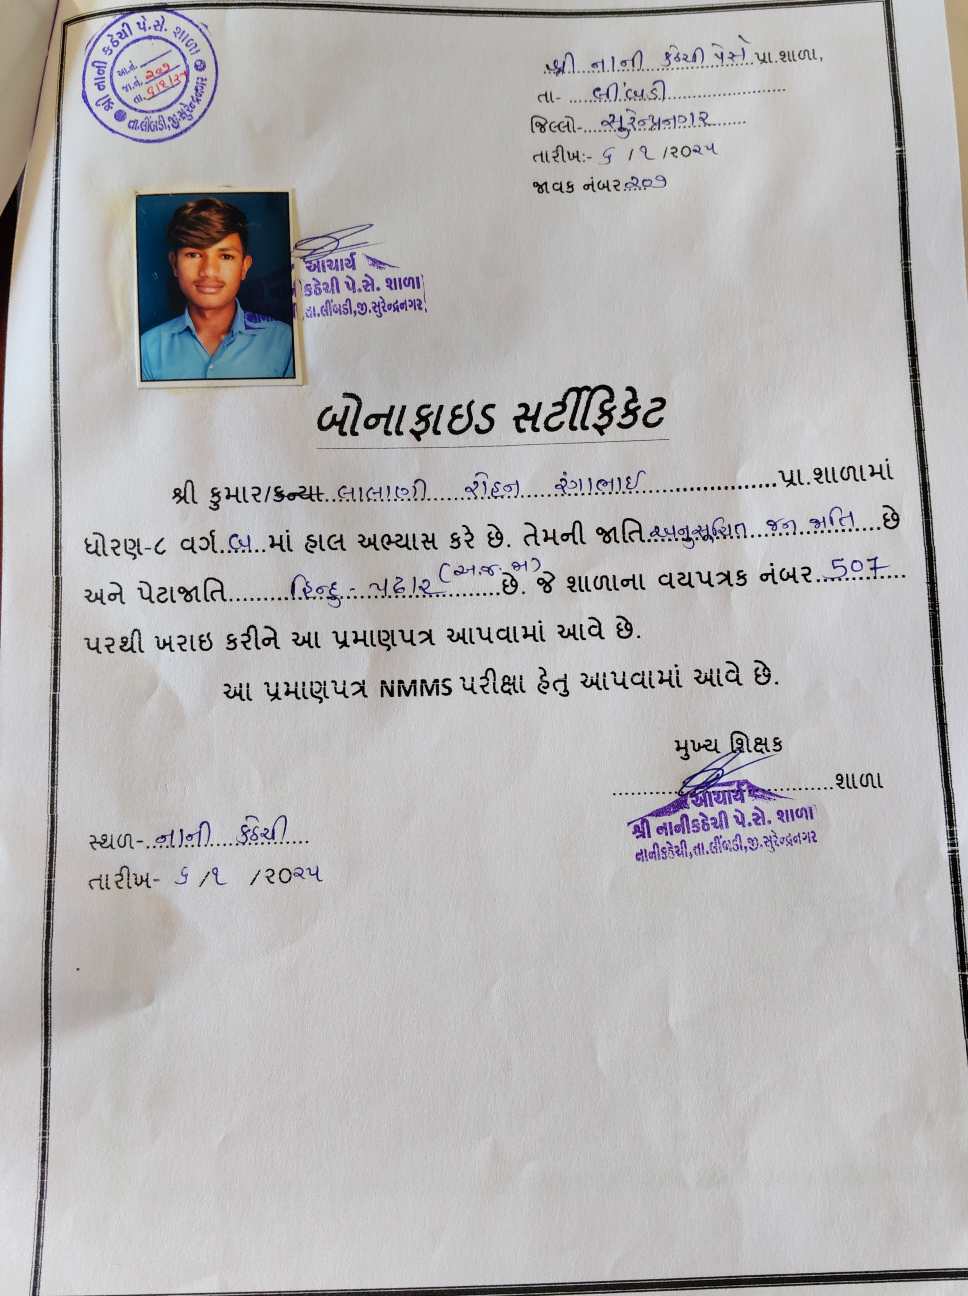 શ્રી નાની કઠેચી પે.સે. શાળા
આ.નં.
જા.નં. ૨૦૭
તા. ૬/૧/૨૫
તા.લીંબડી,જી.સુરેન્દ્રનગર
શ્રી નાની કઠેચી પેસે પ્રા.શાળા,
તા- લીંબડી
જિલ્લો- સુરેન્દ્રનગર
તારીખ:- ૬ /૧ /૨૦૨૫
જાવક નંબર ૨૦૭
આચાર્ય
કઠેચી પે.સે. શાળા
તા.લીંબડી,જી.સુરેન્દ્રનગર
બોનાફાઇડ સર્ટીફિકેટ
શ્રી કુમાર/કન્યા લાલાણી રોહન રંગાભાઈ પ્રા.શાળામાં
ધોરણ-૮ વર્ગ બ માં હાલ અભ્યાસ કરે છે. તેમની જાતિ અનુસૂચિત જન જાતિ છે
(અ.જ.જા)
અને પેટાજાતિ હિન્દુ - પઢાર છે. જે શાળાના વયપત્રક નંબર 507
પરથી ખરાઇ કરીને આ પ્રમાણપત્ર આપવામાં આવે છે.
આ પ્રમાણપત્ર NMMS પરીક્ષા હેતુ આપવામાં આવે છે.
મુખ્ય શિક્ષક
શાળા
આચાર્ય
શ્રી નાનીકઠેચી પે.સે. શાળા
નાનીકઠેચી,તા.લીંબડી,જી.સુરેન્દ્રનગર
સ્થળ- નાની કઠેચી
તારીખ- ૬ /૧ /૨૦૨૫